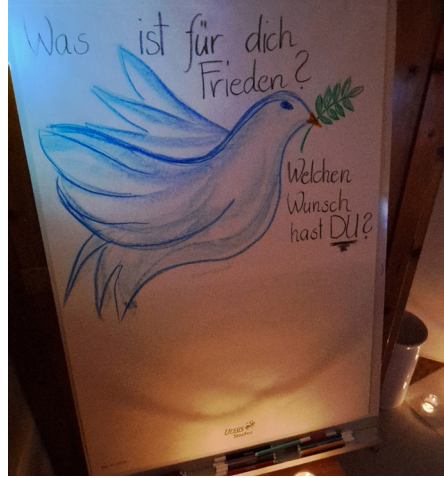 Was ist für dich
Frieden?
Welchen
Wunsch
hast DU?